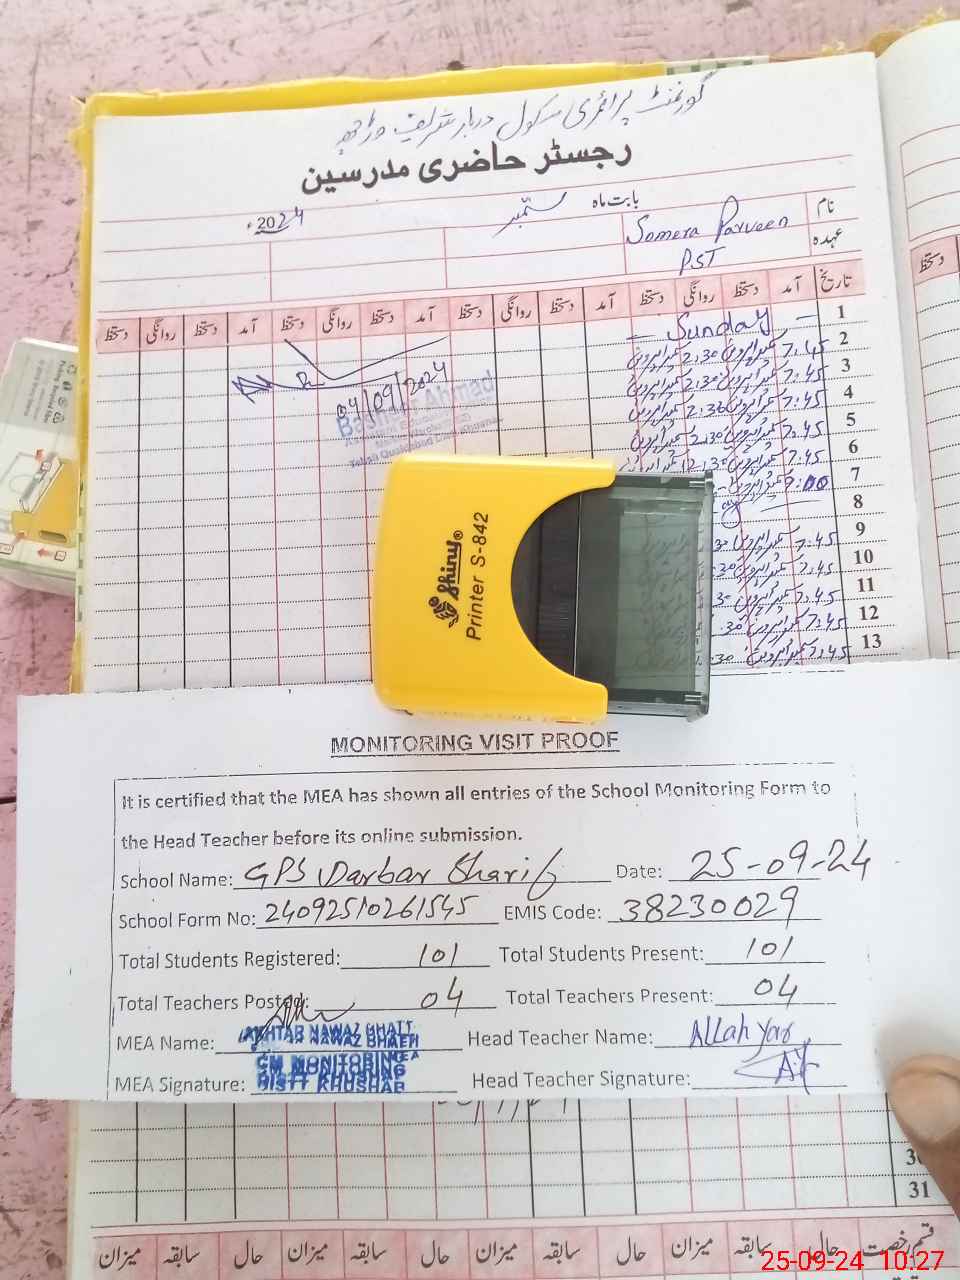 گورنمنٹ پرائمری سکول دربار شریف
رجسٹر حاضری مدرسین
بابت ماہ ستمبر 2024ء
نام Somera Parveen
عہدہ PST
تاریخ آمد دستخط روانگی دستخط آمد دستخط روانگی دستخط آمد دستخط روانگی دستخط
1 Sunday
2 7:45 2:30
3 7:45 2:30
4 7:45 2:30
5 7:45 2:30
6 7:45 12:30
7
8
9 7:45 30
10 7:45 30
11 7:45 30
12 7:45 30
13 7:45 30
04/09/2024
Bashir Ahmad
Shiny®
Printer S-842
MONITORING VISIT PROOF
It is certified that the MEA has shown all entries of the School Monitoring Form to
the Head Teacher before its online submission.
School Name: GPS Darbar Sharif Date: 25-09-24
School Form No: 24092510261545 EMIS Code: 38230029
Total Students Registered: 101 Total Students Present: 101
Total Teachers Posted: 04 Total Teachers Present: 04
MEA Name: AKHTAR NAWAZ BHATTI Head Teacher Name: Allah Yar
MEA Signature: CM MONITORING Head Teacher Signature:
DISTT KHUSHAB
30
31
قسم رخصت حال سابقہ میزان حال سابقہ میزان حال سابقہ میزان حال سابقہ میزان
25-09-24 10:27